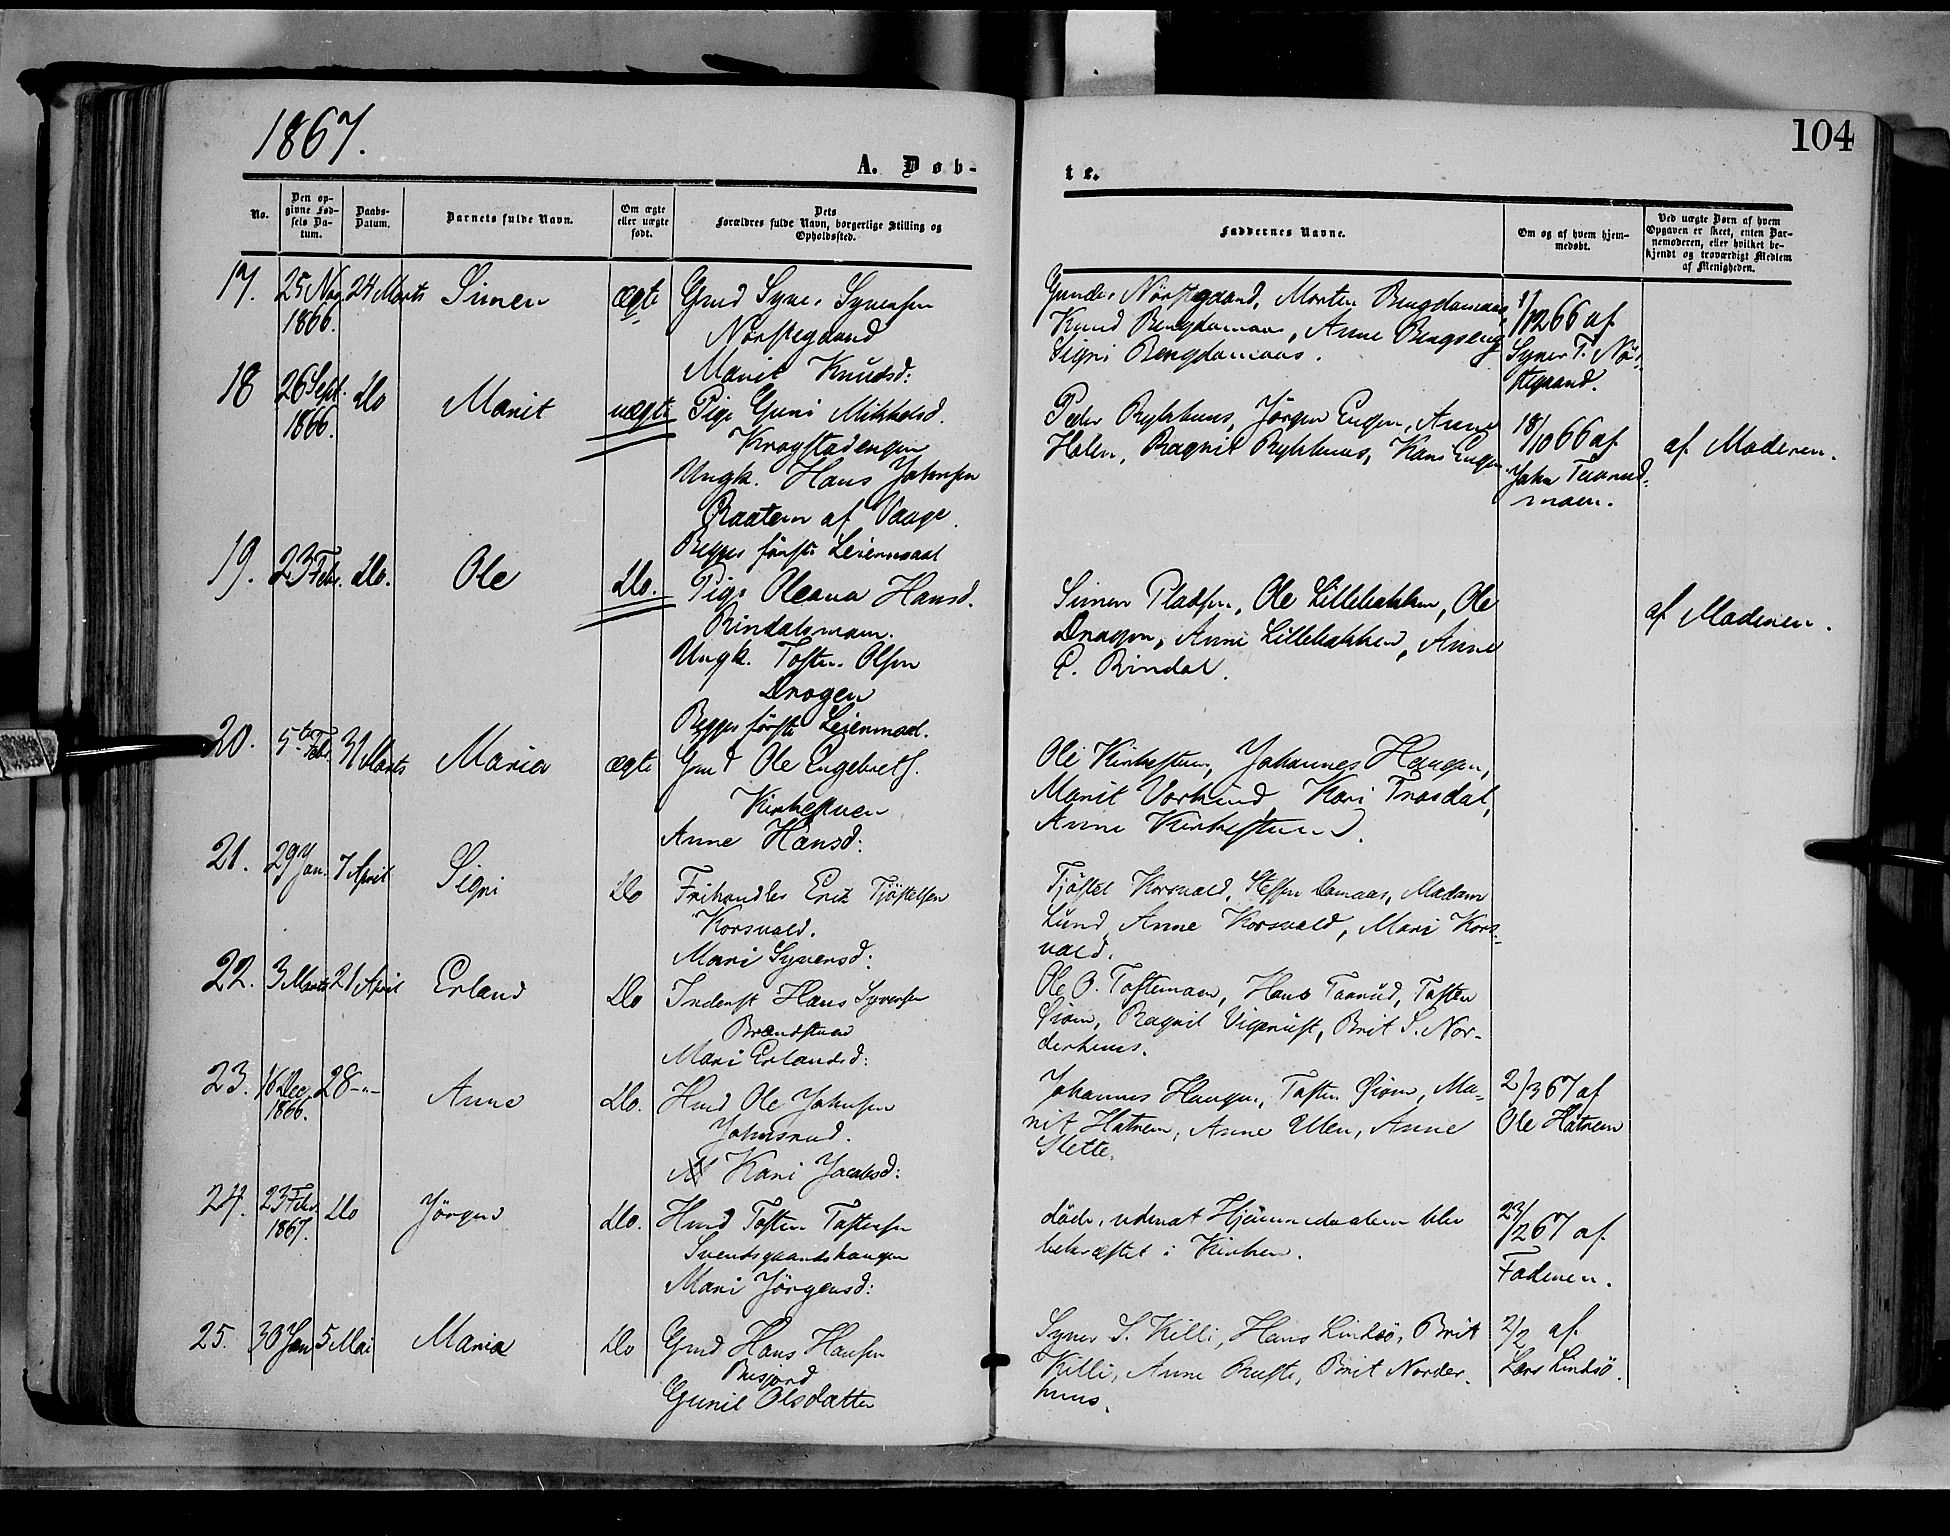 1867.
104
A. Døb-
te.
No.
Den op-
givne Fød-
sels Da-
tum.
Daabs-
Datum.
Barnets fulde Navn.
Om ægte
eller uægte
født.
Dets
Forældres fulde Navn, borgerlige Stilling og
Opholdssted.
Faddernes Navne.
Om og af hvem hjem-
medøbt.
Ved uægte Børn af hvem
Opgaven er skeet, enten Bar-
nemoderen, eller hvilket be-
kjendt og troværdigt Medlem
af Menigheden.
17. 25 Nov. 24 Marts Simen ægte Gmd Syver Syversen
1866.
Nørstegaard
Marit Knudsd:
Gunder Nørstegaard, Morten Bengdamaas,
Knud Bengdamaas, Anne
Sigri Bengdamaas.
1/1266 af
Syver T. Nør-
stegaard.
18 26 Sept. Do Marit uægte Pige Guri Mikkelsd.
1866.
Kragstadengen
Ungk. Hans Johnsen
af Vaage.
Begges første Leiermaal
Peder Rykhuus, Jörgen Engen, Anne
Holen, Ragnil Rykhuus, Hans Engen
18/1066 af
John
moen.
af Moderen.
19. 23 Febr. Do. Ole Do. Pige Oleana Hansd.
Rindalsmoen.
Ungk. Tosten Olsen
Dragen
Begges første Leiermaal.
Simen Pladsen, Ole Lillebakken, Ole
Dragen, Anne Lillebakken, Anne
C. Rindal.
af Moderen.
20. 5te Febr. 31 Marts Maria ægte Gmd Ole Engebrets.
Kirkestuen
Anne Hansd:
Ole Kirkestuen, Johannes Haugen,
Marit Vorkind, Kari Trosdal,
Anne Kirkestuen.
21. 29 Jan. 7 April Sigri Do Frihandler Erik Tjöstelsen
Korsvold.
Mari Syversd:
Tjöstel Korsvold, Steffen Damaas, Madam
Lund, Anne Korsvold, Mari Kors-
vold.
22. 3 Marts 21 April Erland Do Inderst Hans Syversen
Brændstuen
Mari Erlandsd:
Ole O. Tostemoen, Hans Taarud, Tosten
Ragnil Vigerust, Brit S. Nor-
derhuus.
23. 16 Dec. 28 -"- Anne Do. Hmd Ole Johnsen
1866.
Johnsrud.
Kari Jacobsd:
Johannes Haugen, Tosten Ma-
rit Hatrem, Anne Ulen, Anne
Slette.
2/367 af
Ole Hatrem
24. 23 Febr. Do Jörgen Do. Hmd Tosten Tostensen
1867.
Svendsgaardshaugen
Mari Jörgensd:
döde, uden at Hjemmedaaben blev
bekræftet i Kirken.
23/267 af
Faderen.
25. 30 Jan 5 Mai Maria Do Gmd Hans Hansen
Bisjord
Gunil Olsdatter
Syver S. Killi, Hans Lindsö, Brit
Killi, Anne Brit Norder-
huus.
2/2 af
Lars Lindsö.